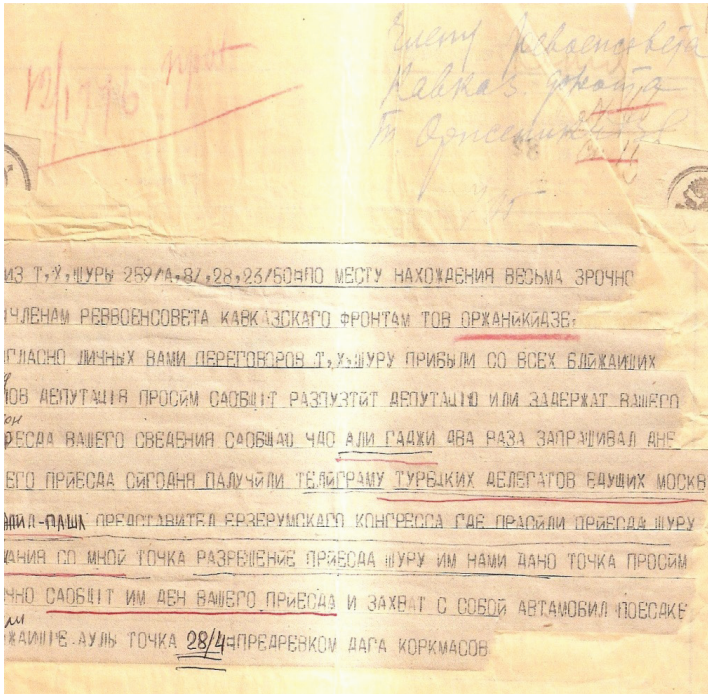 12/1
Члену Реввоенсовета
Кавказ. фронта
т Орженики
ИЗ Т,Х,ШУРЫ 259/А,8/,28,23/50=ПО МЕСТУ НАХОЖДЕНИЯ ВЕСЬМА ЗРОЧНО
ЧЛЕНАМ РЕВВОЕНСОВЕТА КАВКАЗСКАГО ФРОНТАМ ТОВ ОРЖАНИКИДЗЕ=
ОГЛАСНО ЛИЧНЫХ ВАМИ ПЕРЕГОВОРОВ Т,Х,ШУРУ ПРИБЫЛИ СО ВСЕХ БЛИЖАИШИХ
ОВ ДЕПУТАЦІЯ ПРОСИМ САОБЩІТ РАЗПУЗТИТ ДЕПУТАЦІЮ ИЛИ ЗАДЕРЖАТ ВАШЕГО
РЕСДА ВАШЕГО СВЕДЕНИЯ САОБЩАЮ ЧДО АЛИ ГАДЖИ ДВА РАЗА ЗАПРАШИВАЛ ДНЕ
ЕГО ПРИЕСДА СИГОДНЯ ПАЛУЧИЛИ ТЕЛИГРАМУ ТУРЕЦКИХ ДЕЛЕГАТОВ ЕДУЩИХ МОСКВ
ПАША ПРЕДСТАВИТЕЛ ЕРЗЕРУМСКАГО КОНГРЕССА ГДЕ ПРАСИЛИ ПРИЕСДА ШУРУ
АНИЯ СО МНОЙ ТОЧКА РАЗРЕШЕНИЕ ПРИЕСДА ШУРУ ИМ НАМИ ДАНО ТОЧКА ПРОСИМ
ЧНО САОБЩІТ ИМ ДЕН ВАШЕГО ПРИЕСДА И ЗАХВАТ С СОБОЙ АВТАМОБИЛ ПОЕСДКЕ
ЖАИШІЕ АУЛЬ ТОЧКА 28/4=ПРЕДРЕВКОМ ДАГА КОРКМАСОВ